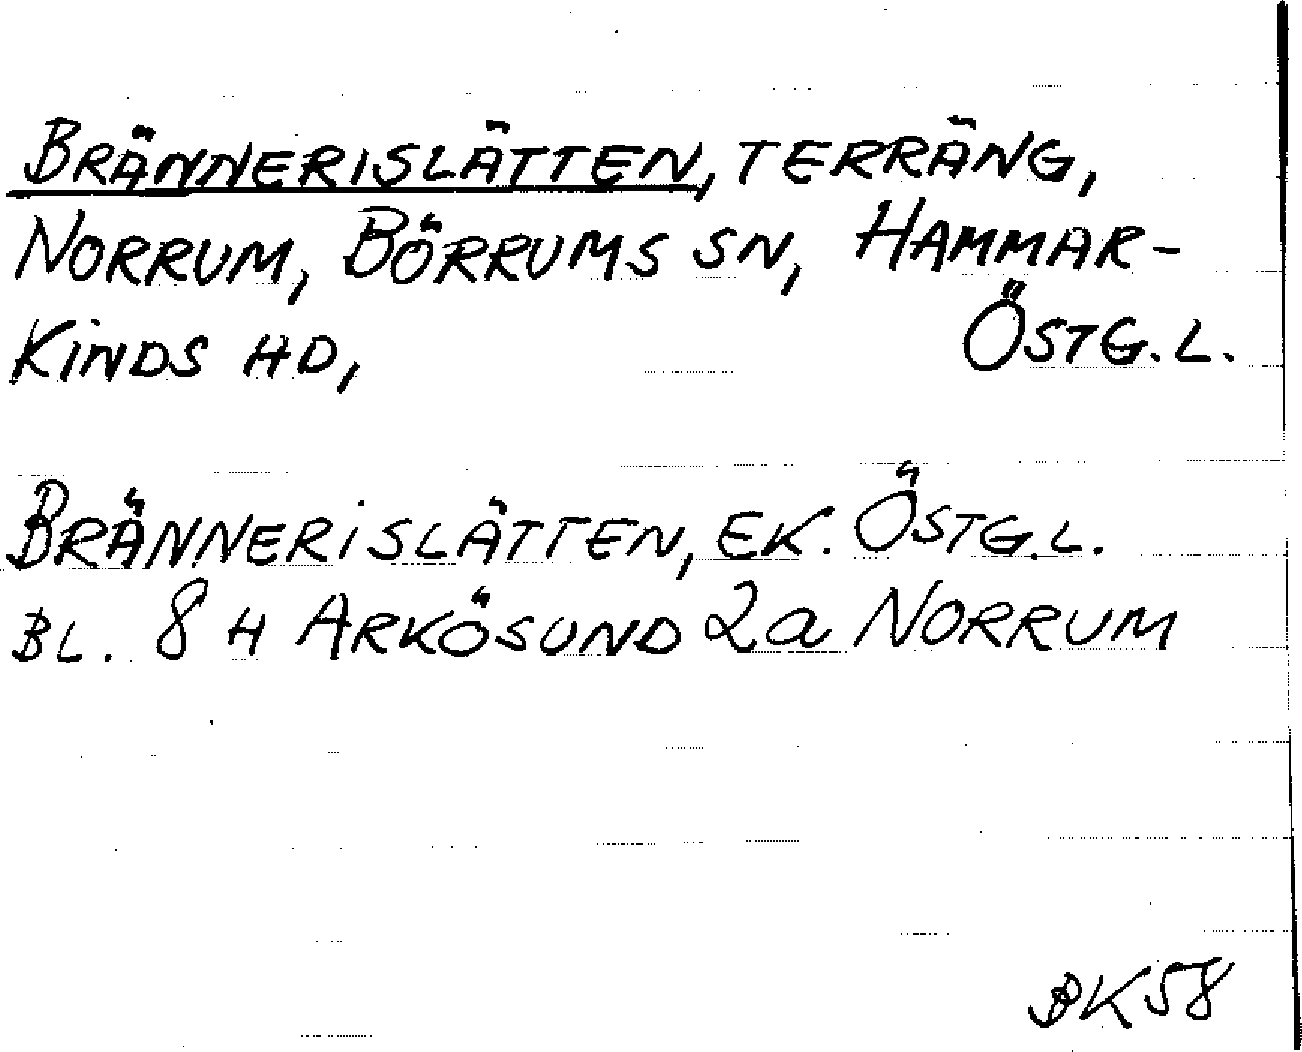 BRÄNNERISLÄTTEN, TERRÄNG,
NORRUM, BÖRRUMS SN, HAMMAR-
KINDS HD, ÖSTG. L.
BRÄNNERISLÄTTEN, EK. ÖSTG. L.
BL. 8 H ARKÖSUND 2a NORRUM
BK58